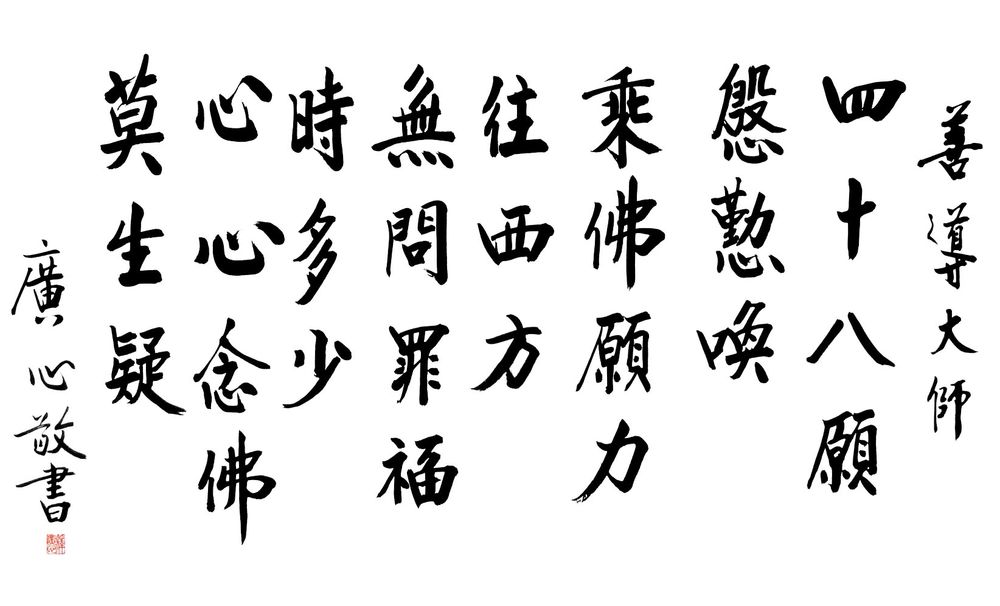 善導大師
四十八願
慇懃喚
乘佛願力
往西方
無問罪福
時多少
心心念佛
莫生疑
廣心敬書